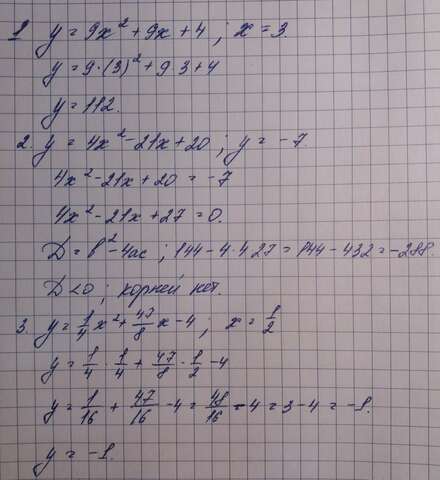 1 y = 9x² + 9x + 4 ; x = 3.
y = 9·(3)² + 9 3 + 4
y = 112.
2. y = 4x² - 21x + 20 ; y = -7.
4x² - 21x + 20 = -7
4x² - 21x + 27 = 0.
D = b² - 4ac ; 144 - 4·4 27 = 144 - 432 = -288.
D < 0 ; корней нет.
3. y = 1/4 x² + 47/8 x - 4 ; x = 1/2
y = 1/4 · 1/4 + 47/8 · 1/2 - 4
y = 1/16 + 47/16 - 4 = 48/16 - 4 = 3 - 4 = -1.
y = -1.